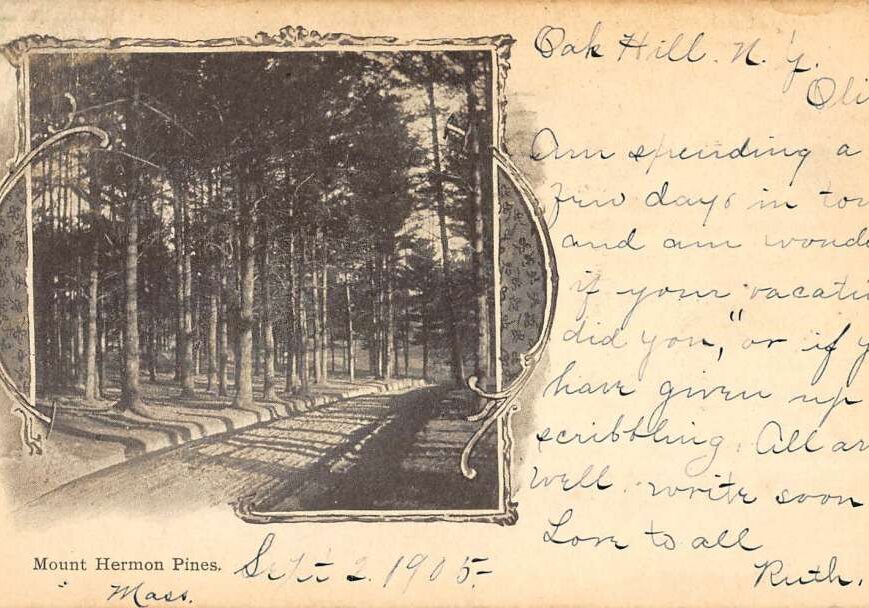 Oak Hill. N. Y.
Oli
Am spending a
few days in tow
and am wonde
if your "vacati
did you," or if y
have given up
scribbling. All ar
well. write soon
Love to all
Ruth.
Mount Hermon Pines.
Mass.
Sept 2. 1905-